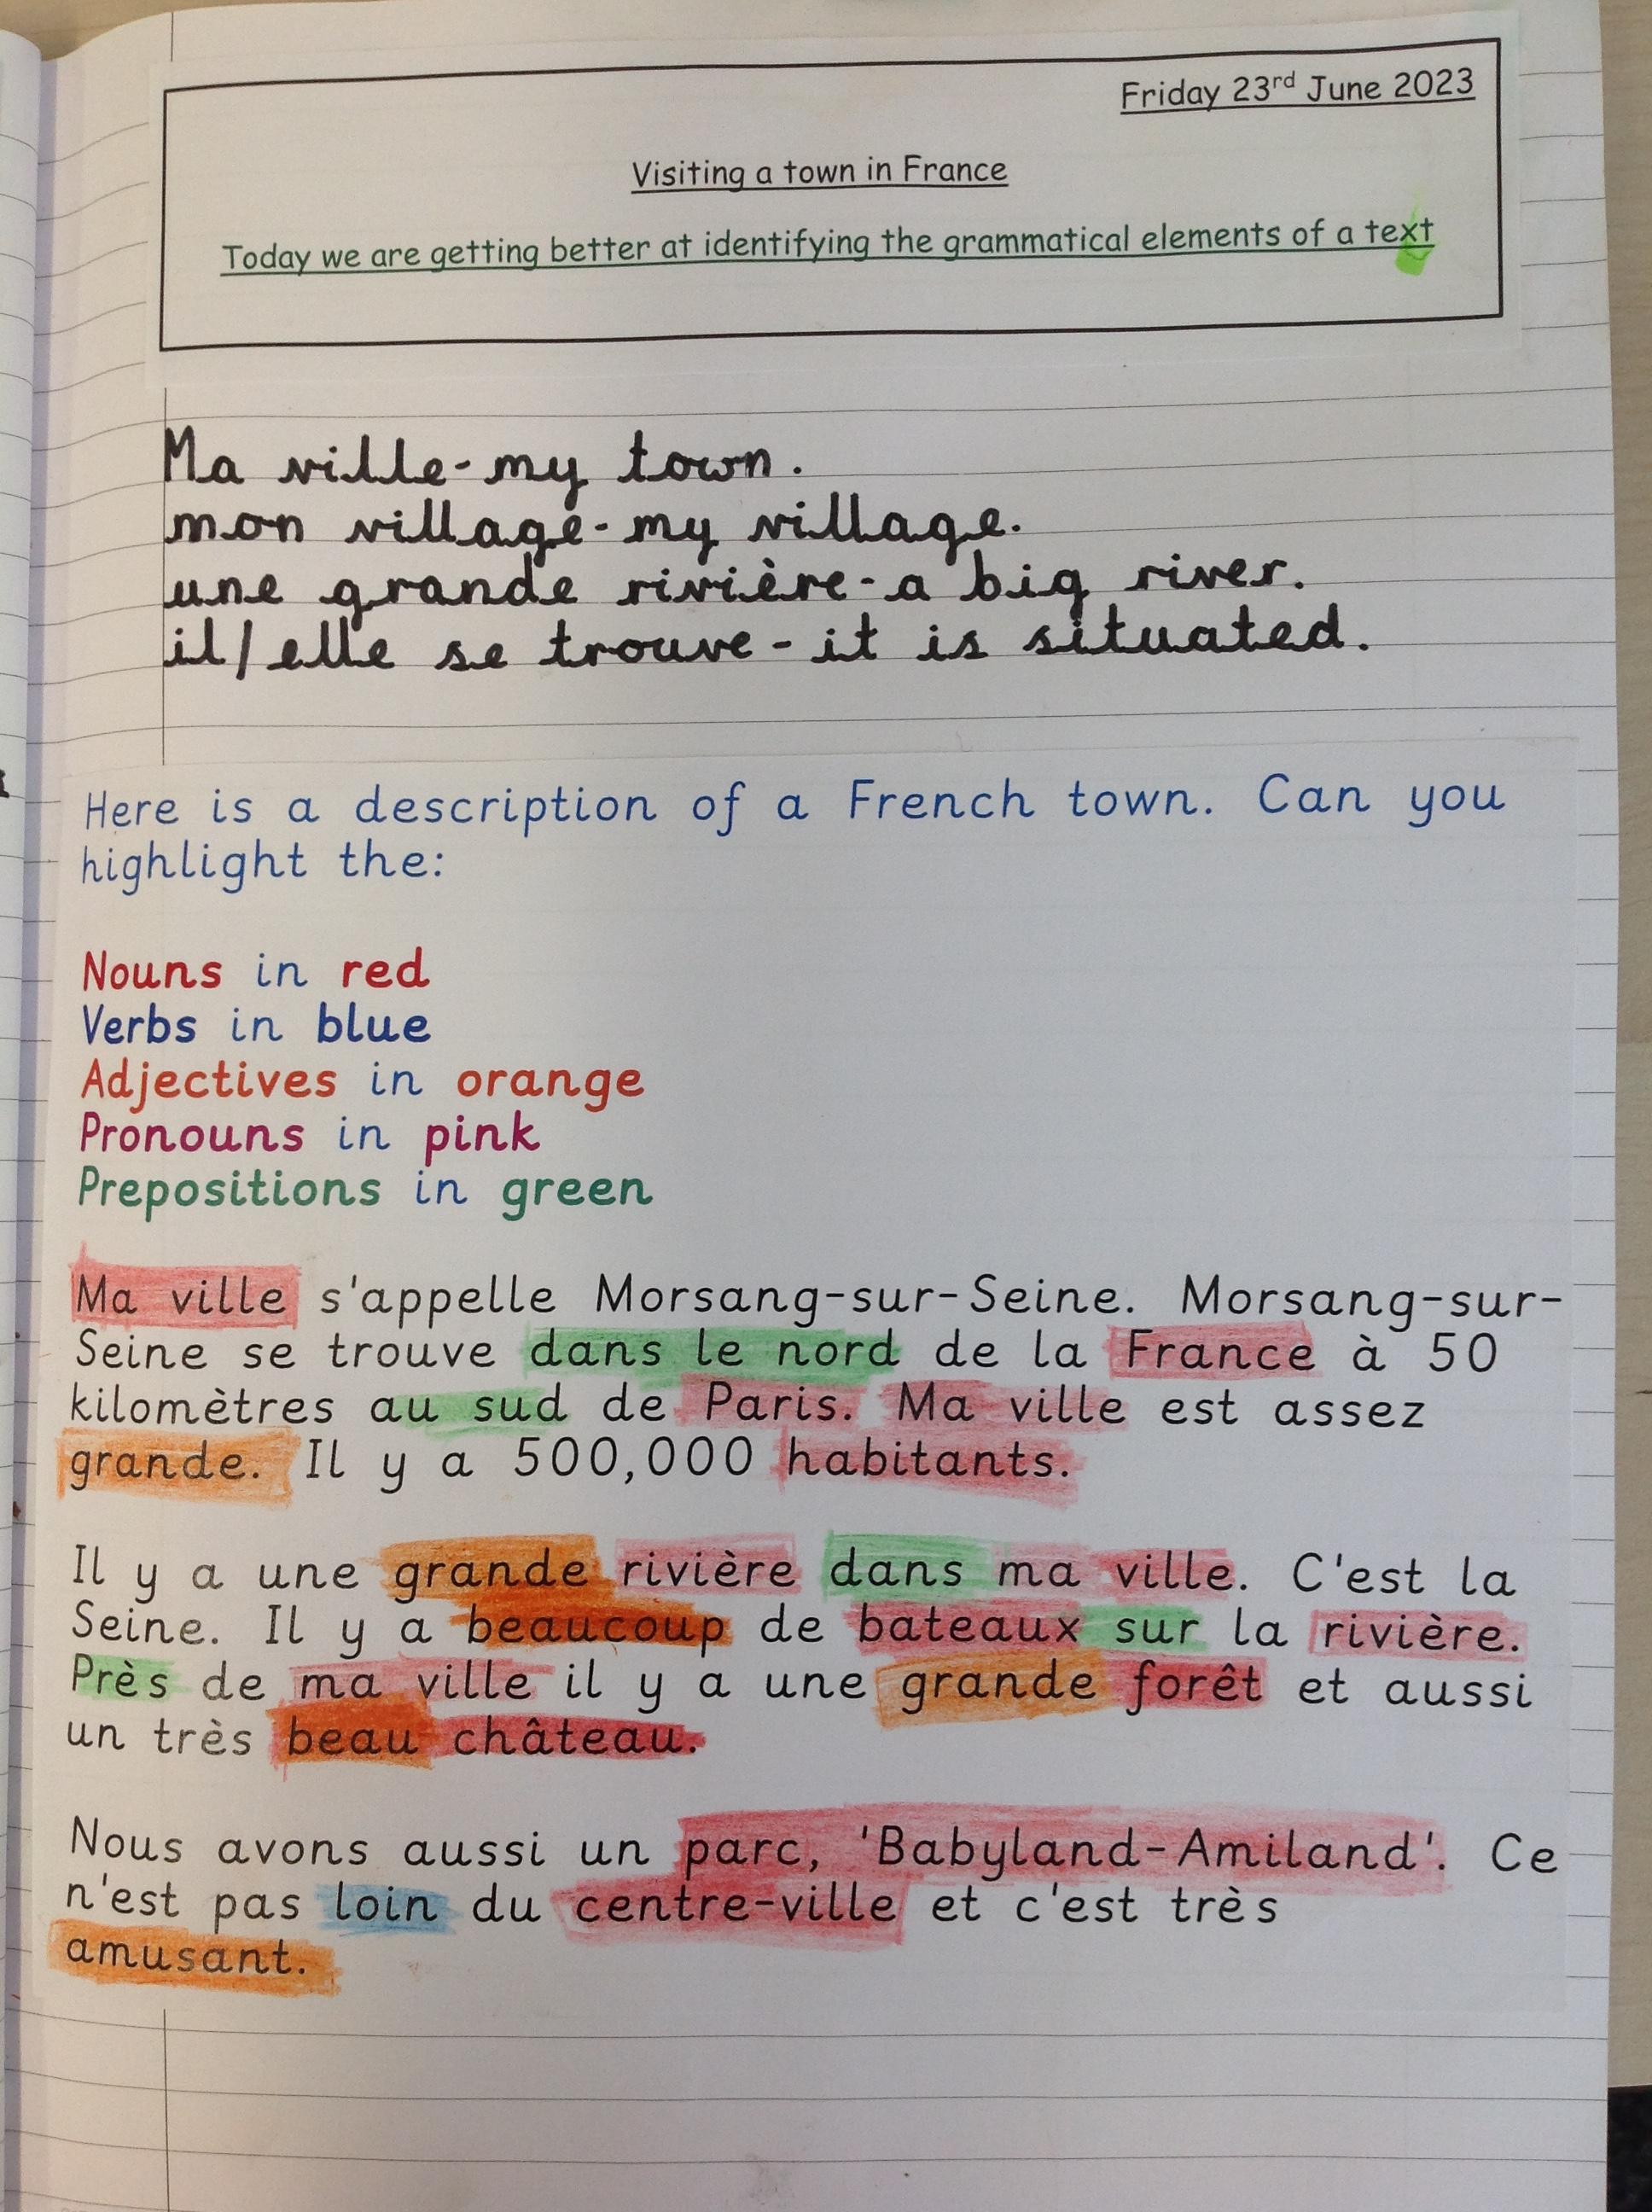 Friday 23rd June 2023
Visiting a town in France
Today we are getting better at identifying the grammatical elements of a text
Ma ville-my town.
mon village-my village.
une grande rivière-a big river.
il/elle se trouve-it is situated.
Here is a description of a French town. Can you
highlight the:
Nouns in red
Verbs in blue
Adjectives in orange
Pronouns in pink
Prepositions in green
Ma ville s'appelle Morsang-sur-Seine. Morsang-sur-
Seine se trouve dans le nord de la France à 50
kilomètres au sud de Paris. Ma ville est assez
grande. Il y a 500,000 habitants.
Il y a une grande rivière dans ma ville. C'est la
Seine. Il y a beaucoup de bateaux sur la rivière.
Près de ma ville il y a une grande forêt et aussi
un très beau château.
Nous avons aussi un parc, 'Babyland-Amiland'. Ce
n'est pas loin du centre-ville et c'est très
amusant.